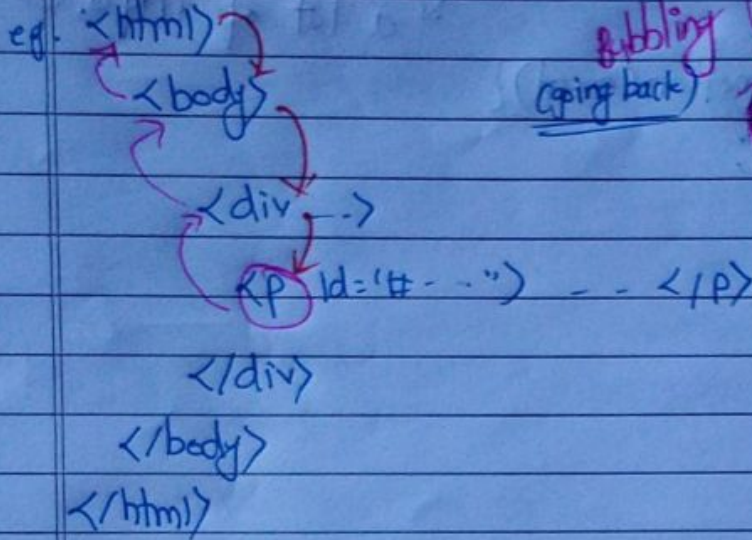 eg. <html>
Bubbling
<body>
(going back)
<div ...>
<p id='# - - "> - - </p>
</div>
</body>
</html>